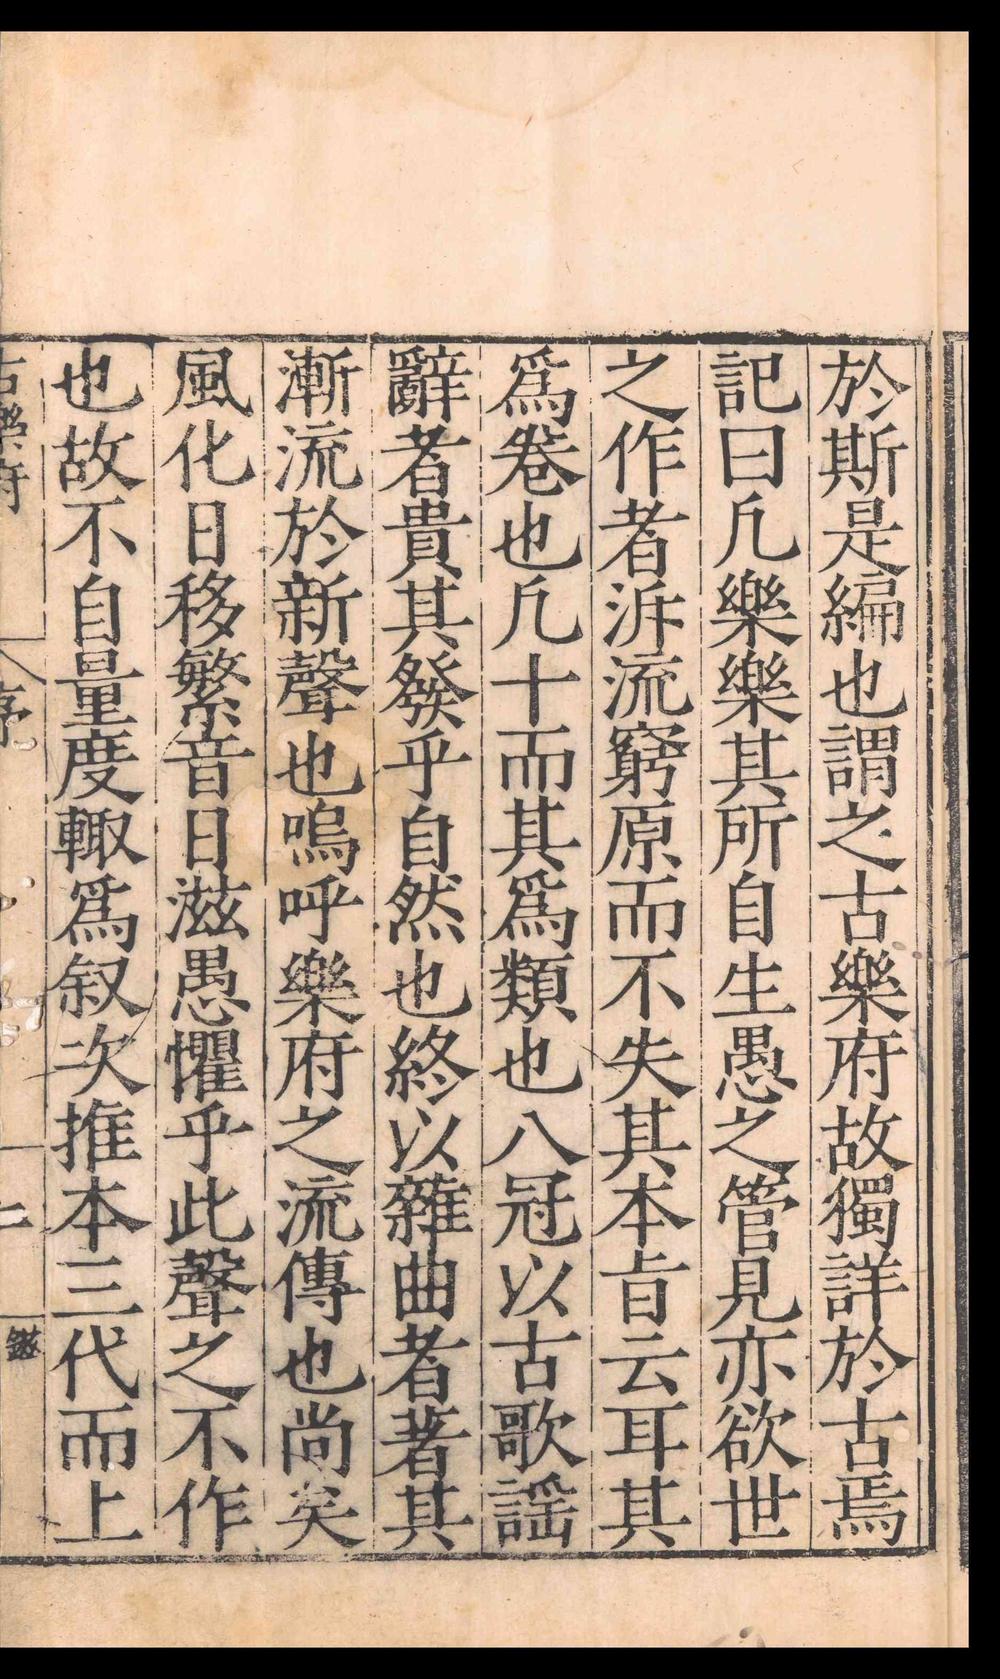 於斯是編也謂之古樂府故獨詳於古焉
記曰凢樂樂其所自生愚之管見亦欲世
之作者泝流窮原而不失其本旨云耳其
爲卷也凢十而其爲類也八冠以古歌謡
辭者貴其發乎自然也終以雜曲者著其
漸流於新聲也嗚呼樂府之流傳也尚矣
風化日移繁音日滋愚懼乎此聲之不作
也故不自量度輙爲叙次推本三代而上
古樂府
序
二